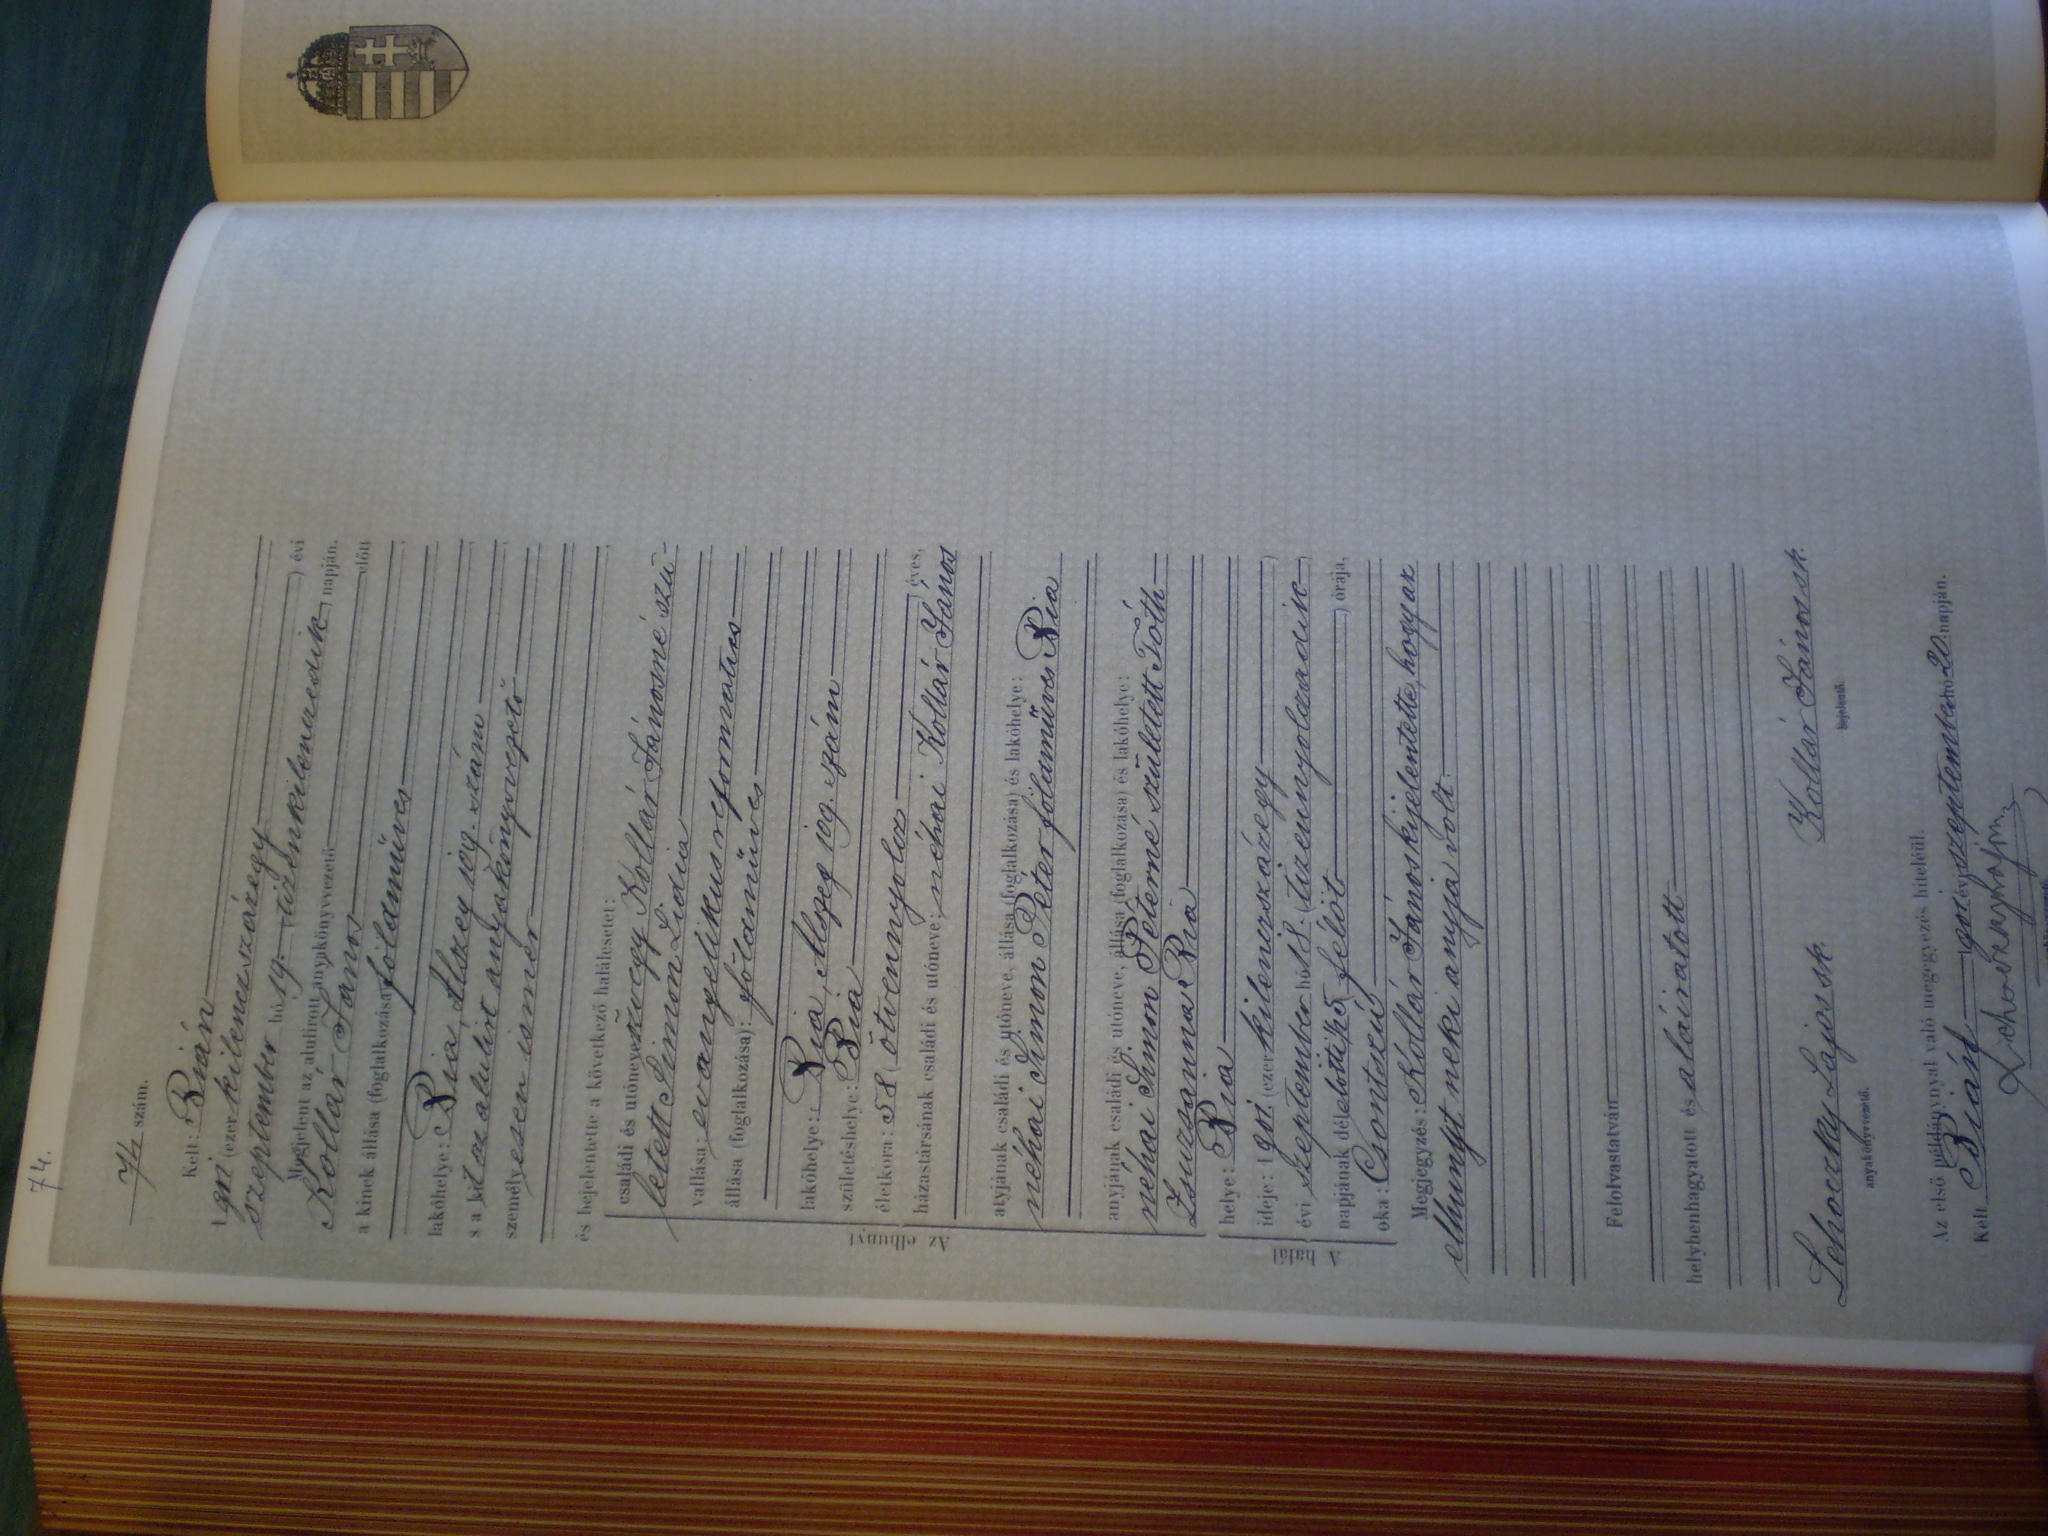 74.
74 szám.
Kelt: Bián
1901 (ezer kilenczszázegy) évi
szeptember hó 19. (tizenkilenczedik) napján.
Megjelent az alulirott anyakönyvvezető előtt
Kollár János
a kinek állása (foglalkozása) földműves
lakóhelye: Bia Alszeg 109. szám
s a kit az alulirt anyakönyvvezető
személyesen ismer
és bejelentette a következő halálesetet:
Az elhunyt
családi és utóneve: özvegy Kollár Jánosné szü-
letett Simon Lidia
vallása: evangelikus reformatus
állása (foglalkozása): földműves
lakóhelye: Bia, Alszeg 109. szám
születéshelye: Bia
életkora: 58 (ötvennyolcz) éves,
házastársának családi és utóneve: néhai Kollár János
atyjának családi és utóneve, állása (foglalkozása) és lakóhelye:
néhai Simon Péter földműves Bia
anyjának családi és utóneve, állása (foglalkozása) és lakóhelye:
néhai Simon Péterné született Tóth
Zsuzsanna Bia
A halál
helye: Bia
ideje: 1901. (ezer kilenczszázegy)
évi szeptember hó 18. (tizennyolczadik)
napjának délelőtti ½5 (félöt) órája,
oka: Csontszú
Megjegyzés: Kollár János kijelentette, hogy az
elhunyt neki anyja volt.
Felolvastatván
helybenhagyatott és aláiratott
Lehoczky Lajos sk. Kollár János sk.
anyakönyvvezető. bejelentő.
Az első példánynyal való megegyezés hiteléül.
Kelt Biáit 1901 évi szeptember hó 20 napján.